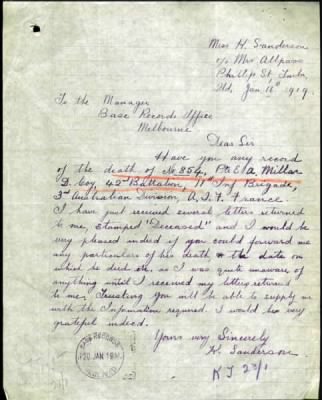 Miss H. Sanderson
c/o Mrs Allpass
Phillip St,
Qld, Jan 16th 1919.
To the Manager
Base Records Office
Melbourne
Dear Sir
Have you any record
of the death of No 854, Pte E A Millar
D. Coy, 42nd Battalion, 11th Inf Brigade,
3rd Australian Division, A.I.F. France.
I have just received several letters returned
to me, stamped "Deceased" and I would be
very pleased indeed if you could forward me
any particulars of his death & the date on
which he died etc. as I was quite unaware of
anything until I received my letters returned
to me, Trusting you will be able to supply me
with the Infomation required. I would be very
grateful indeed.
Yours very Sincerely
H. Sanderson
BASE RECORDS
20 JAN 19